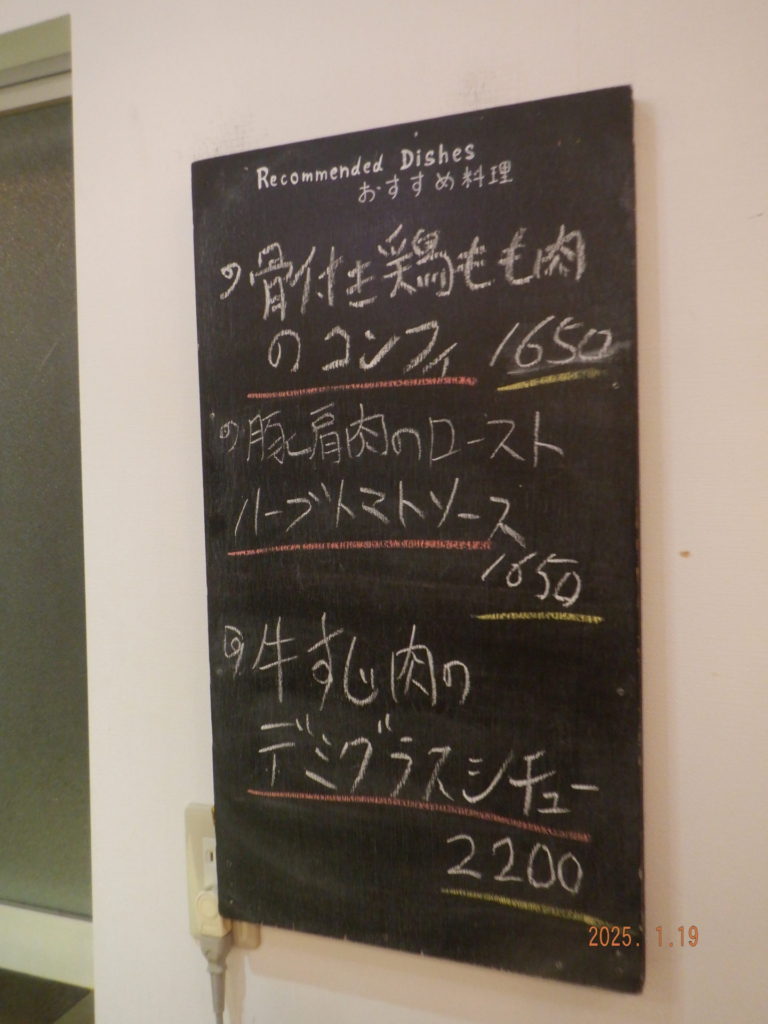 Recommended Dishes
おすすめ料理
骨付き鶏もも肉
のコンフィ 1650
豚肩肉のロースト
ハーブトマトソース
1650
牛すじ肉の
デミグラスシチュー
2200
2025. 1.19